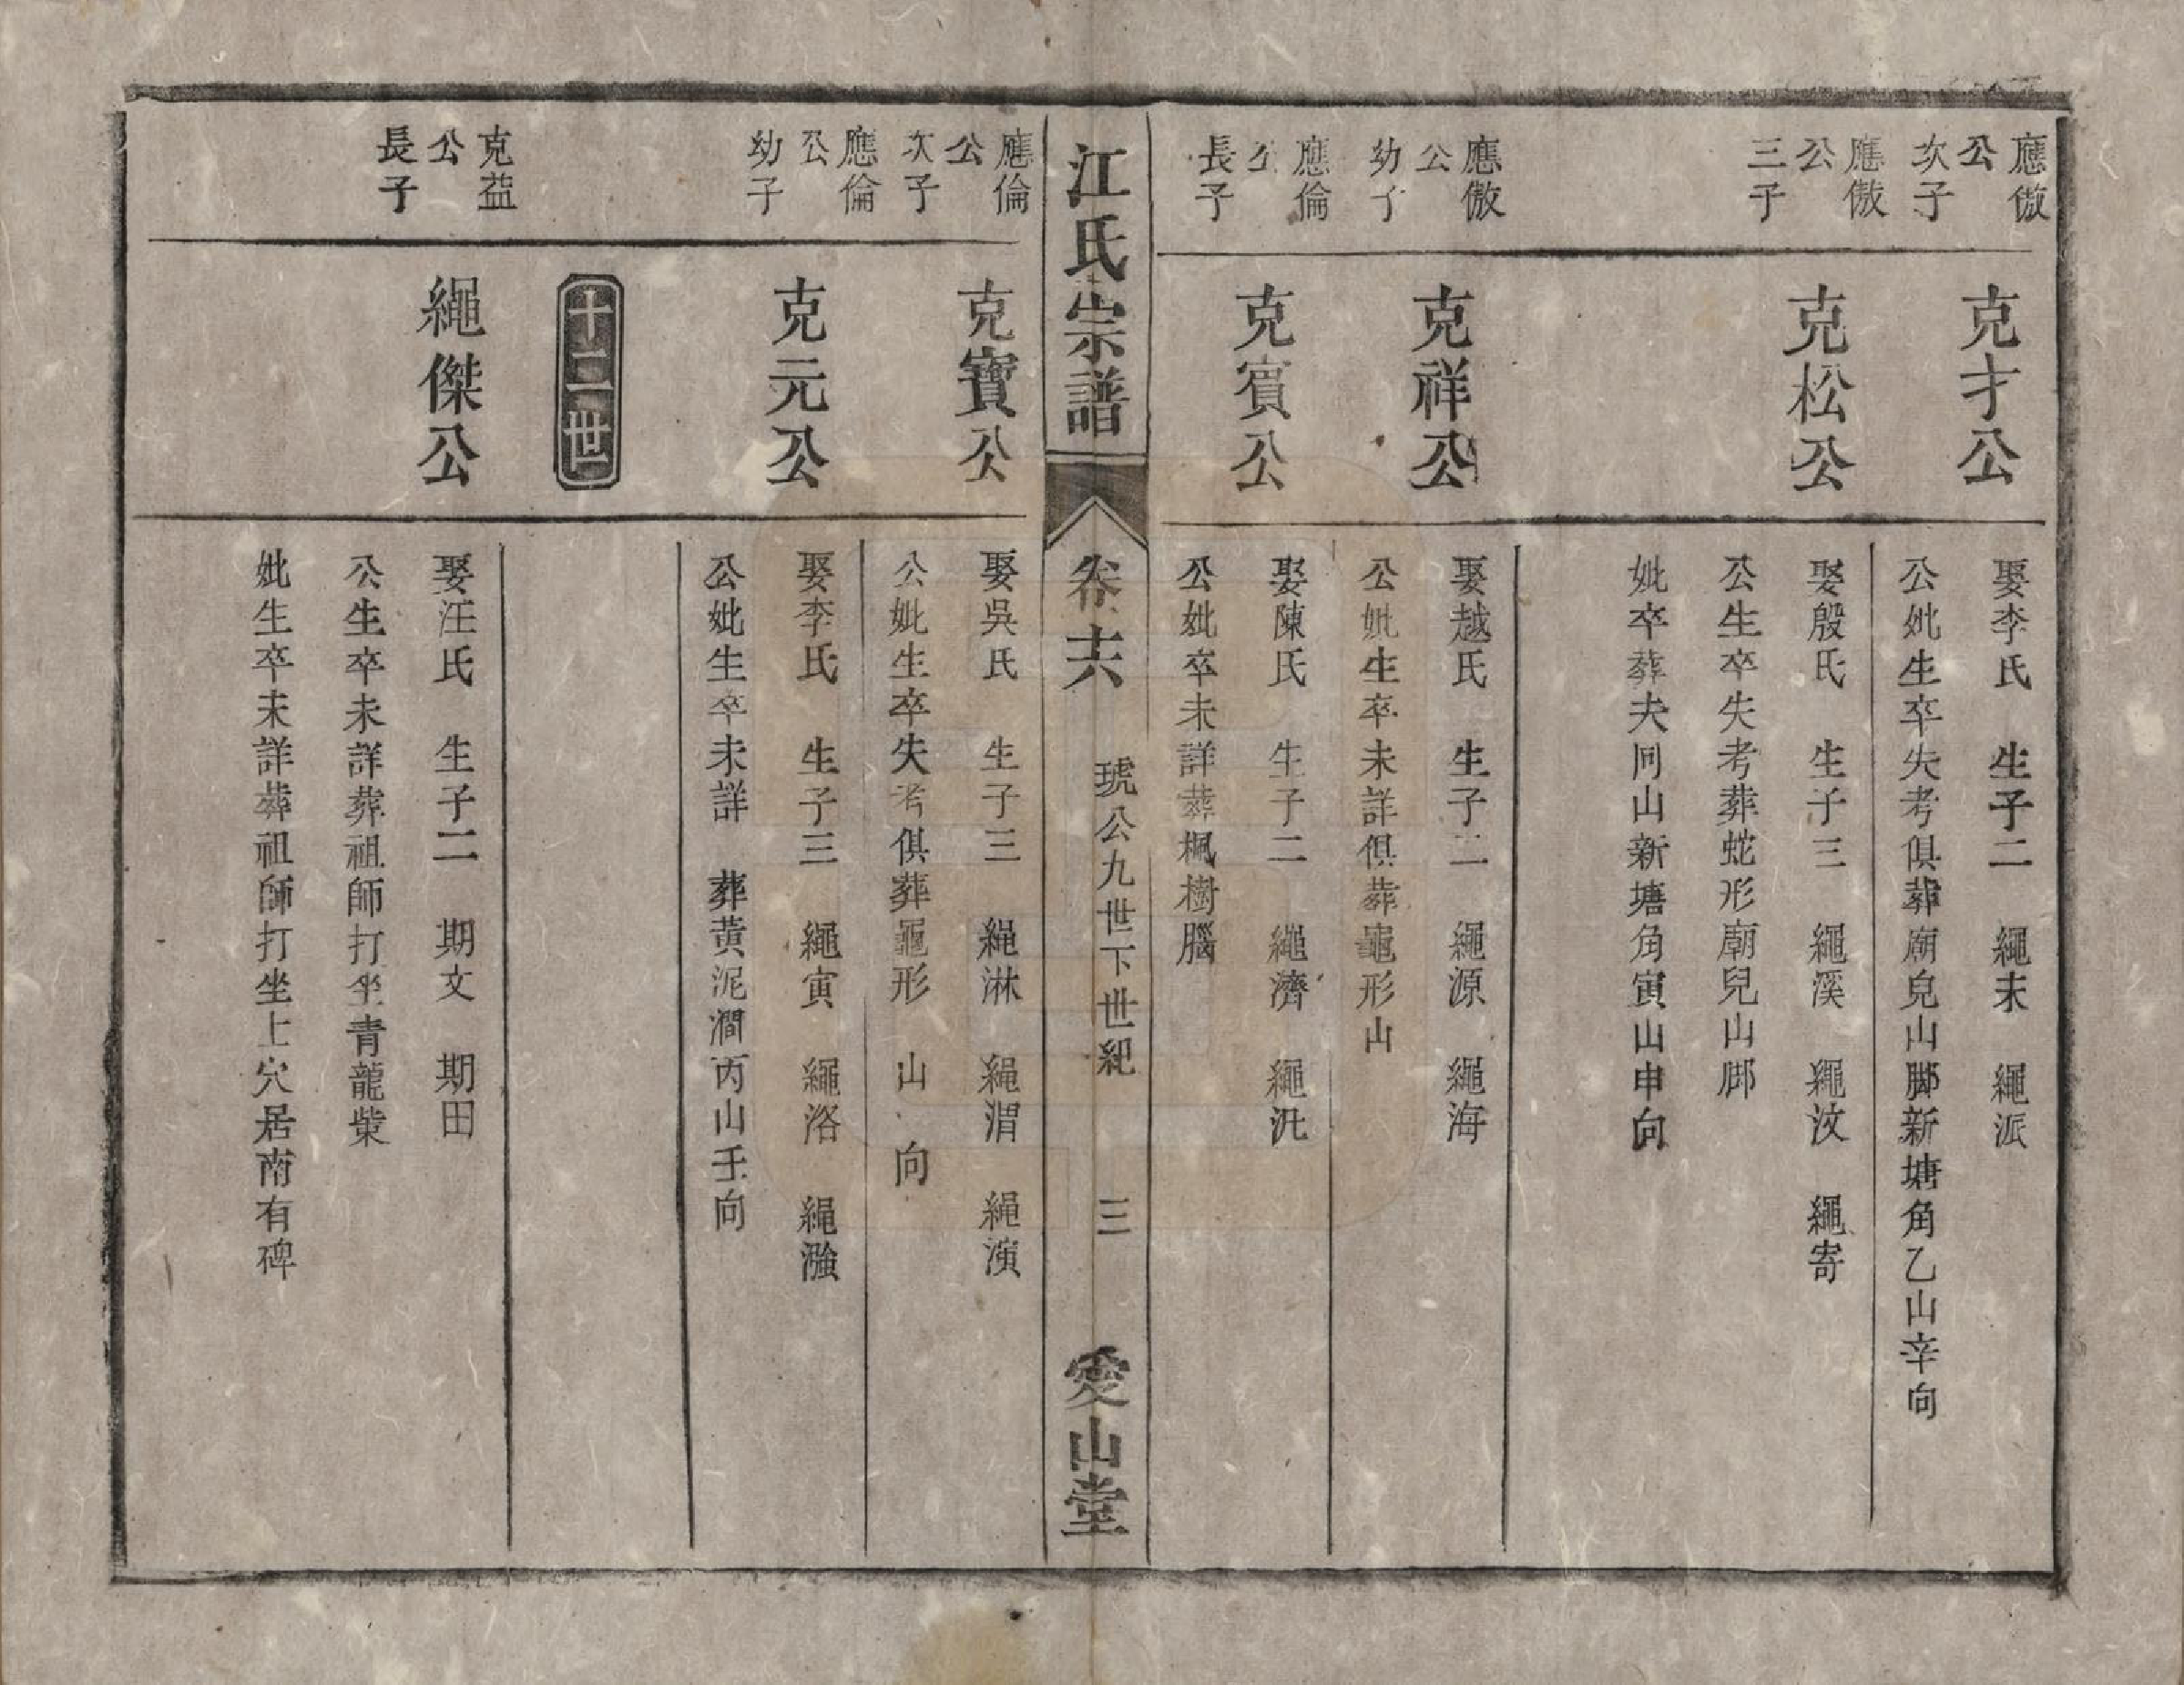 應傲
公
次子
克才公
娶李氏　生子二　繩末　繩派
公妣生卒失考俱葬廟皃山脚新塘角乙山辛向
應傲
公
三子
克松公
娶殷氏　生子三　繩溪　繩汶　繩寄
公生卒失考葬蛇形廟兒山脚
妣卒葬夫同山新塘角寅山申向
應傲
公
幼子
克祥公
娶越氏　生子二　繩源　繩海
公妣生卒未詳俱葬龜形山
應倫
公
長子
克賓公
娶陳氏　生子二　繩濟　繩沘
公妣卒未詳葬楓樹腦
江氏宗譜
卷六
琥公九世下世紀
三
愛山堂
應倫
公
次子
克寶公
娶吳氏　生子三　繩淋　繩渭　繩演
公妣生卒失考俱葬龜形　山　向
應倫
公
幼子
克元公
娶李氏　生子三　繩寅　繩洛　繩漒
公妣生卒未詳　葬黃泥澗丙山壬向
十二世
克益
公
長子
繩傑公
娶汪氏　生子二　期文　期田
公生卒未詳葬祖師打坐青龍柴
妣生卒未詳葬祖師打坐上穴居南有碑